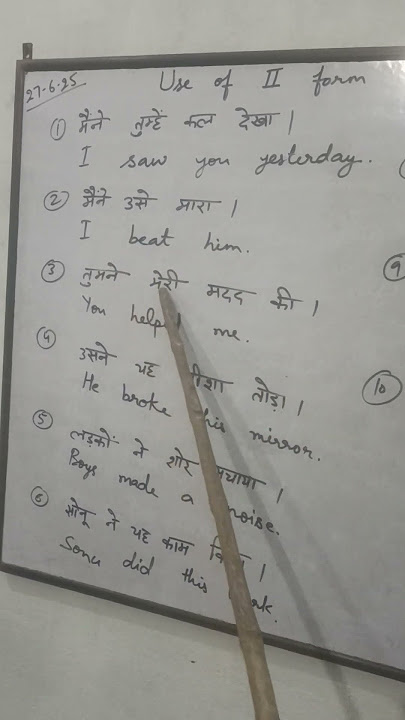 27-6-25
Use of II form
① मैंने तुम्हें कल देखा |
I saw you yesterday.
② मैंने उसे मारा |
I beat him.
③ तुमने मेरी मदद की |
You me.
④ उसने यह तोड़ा |
He broke mirror.
⑤ लड़कों ने शोर |
Boys made a
⑥ सोनू ने यह काम |
Sonu did this
⑨
⑩